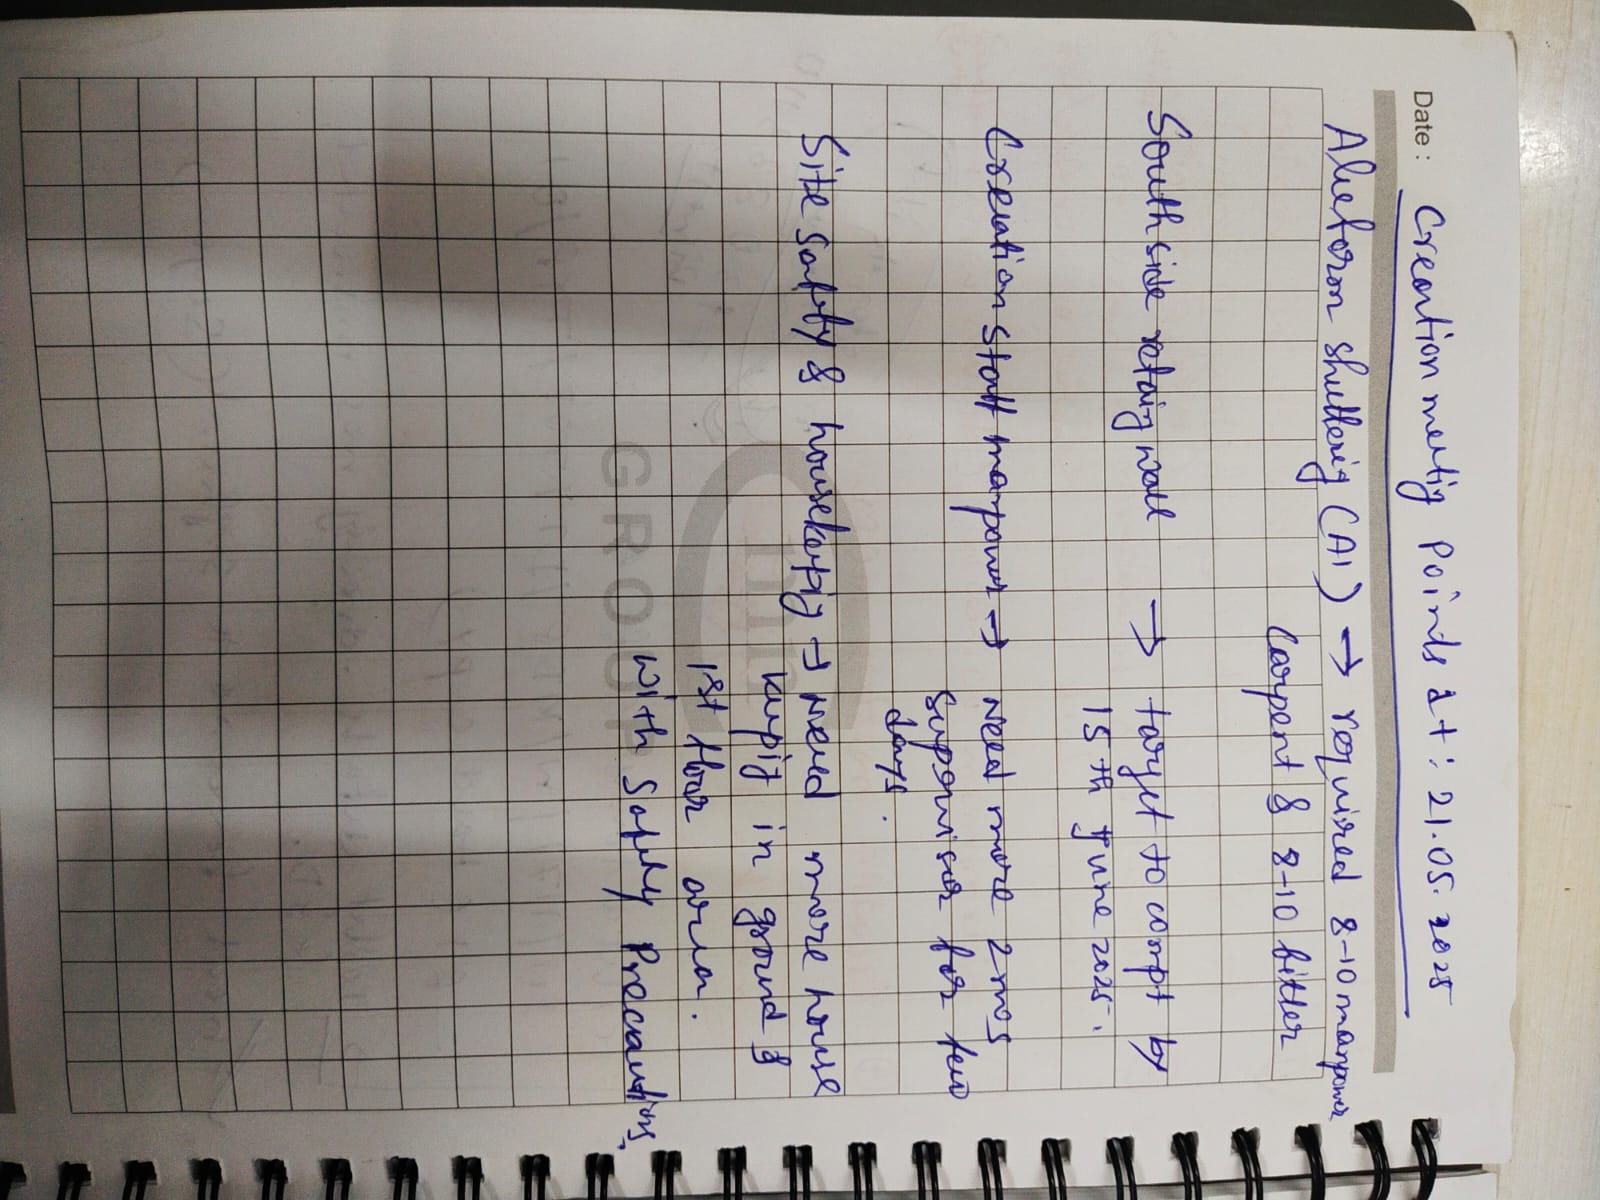 Date :
Creation meetig Points dt: 21.05.2025
Aluform shutterig (A1) → required 8-10 manpower
Carpent & 8-10 fitter
South side retaig wall → target to compt by
15th June 2025.
Creation staff manpower → Need more 2 nos
Supervisor for few
days.
Site safty & housekepig → Need more house
kepig in ground &
1st floor area.
with Safety Precautions.
GROUP